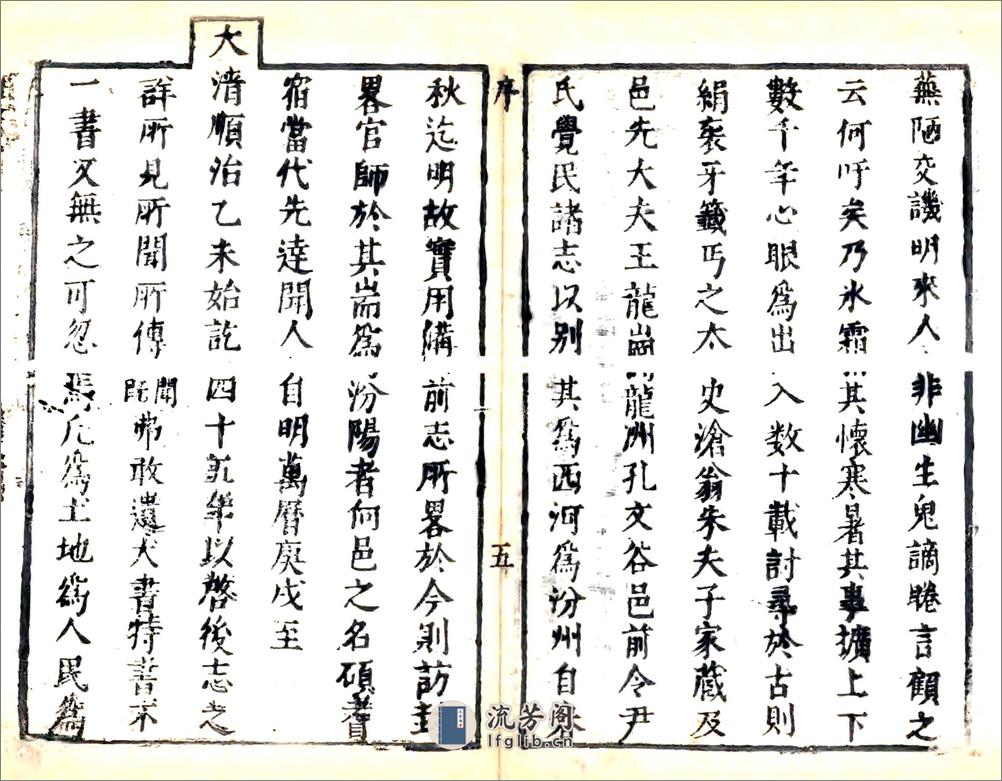 蕪陋交譏明來人非幽生鬼謫睠言顧之
云何吁矣乃氷霜其懷寒暑其事擴上下
數千年心眼爲出入数十載討尋於古則
絹袠牙籤丐之太史滄翁朱夫子家藏及
邑先大夫王龍岡龍洲孔文谷邑前令尹
氏覺民諸志以别其爲西河爲汾州自
序
五
秋迄明故實用備前志所畧於今則訪
畧官師於其耑爲汾陽者何邑之名碩耆
宿當代先達聞人自明萬曆庚戍至
大清順治乙未始訖四十五年以啓後志之
詳所見所聞所傳聞既弗敢遺大書特書不
一書又無之可忽焉凡爲土地爲人民爲
流芳阁
lfglib.cn